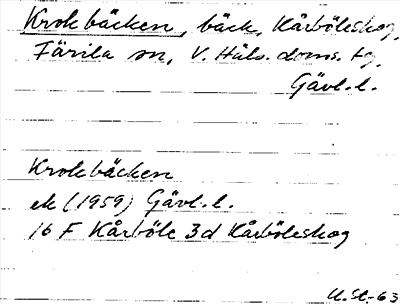 Krokbäcken, bäck, Kårböleskog,
Färila sn, V. Häls. doms. tg,
Gävl. l.
Krokbäcken
ek (1959) Gävl. l.
16 F Kårböle 3d Kårböleskog
U. St.-63